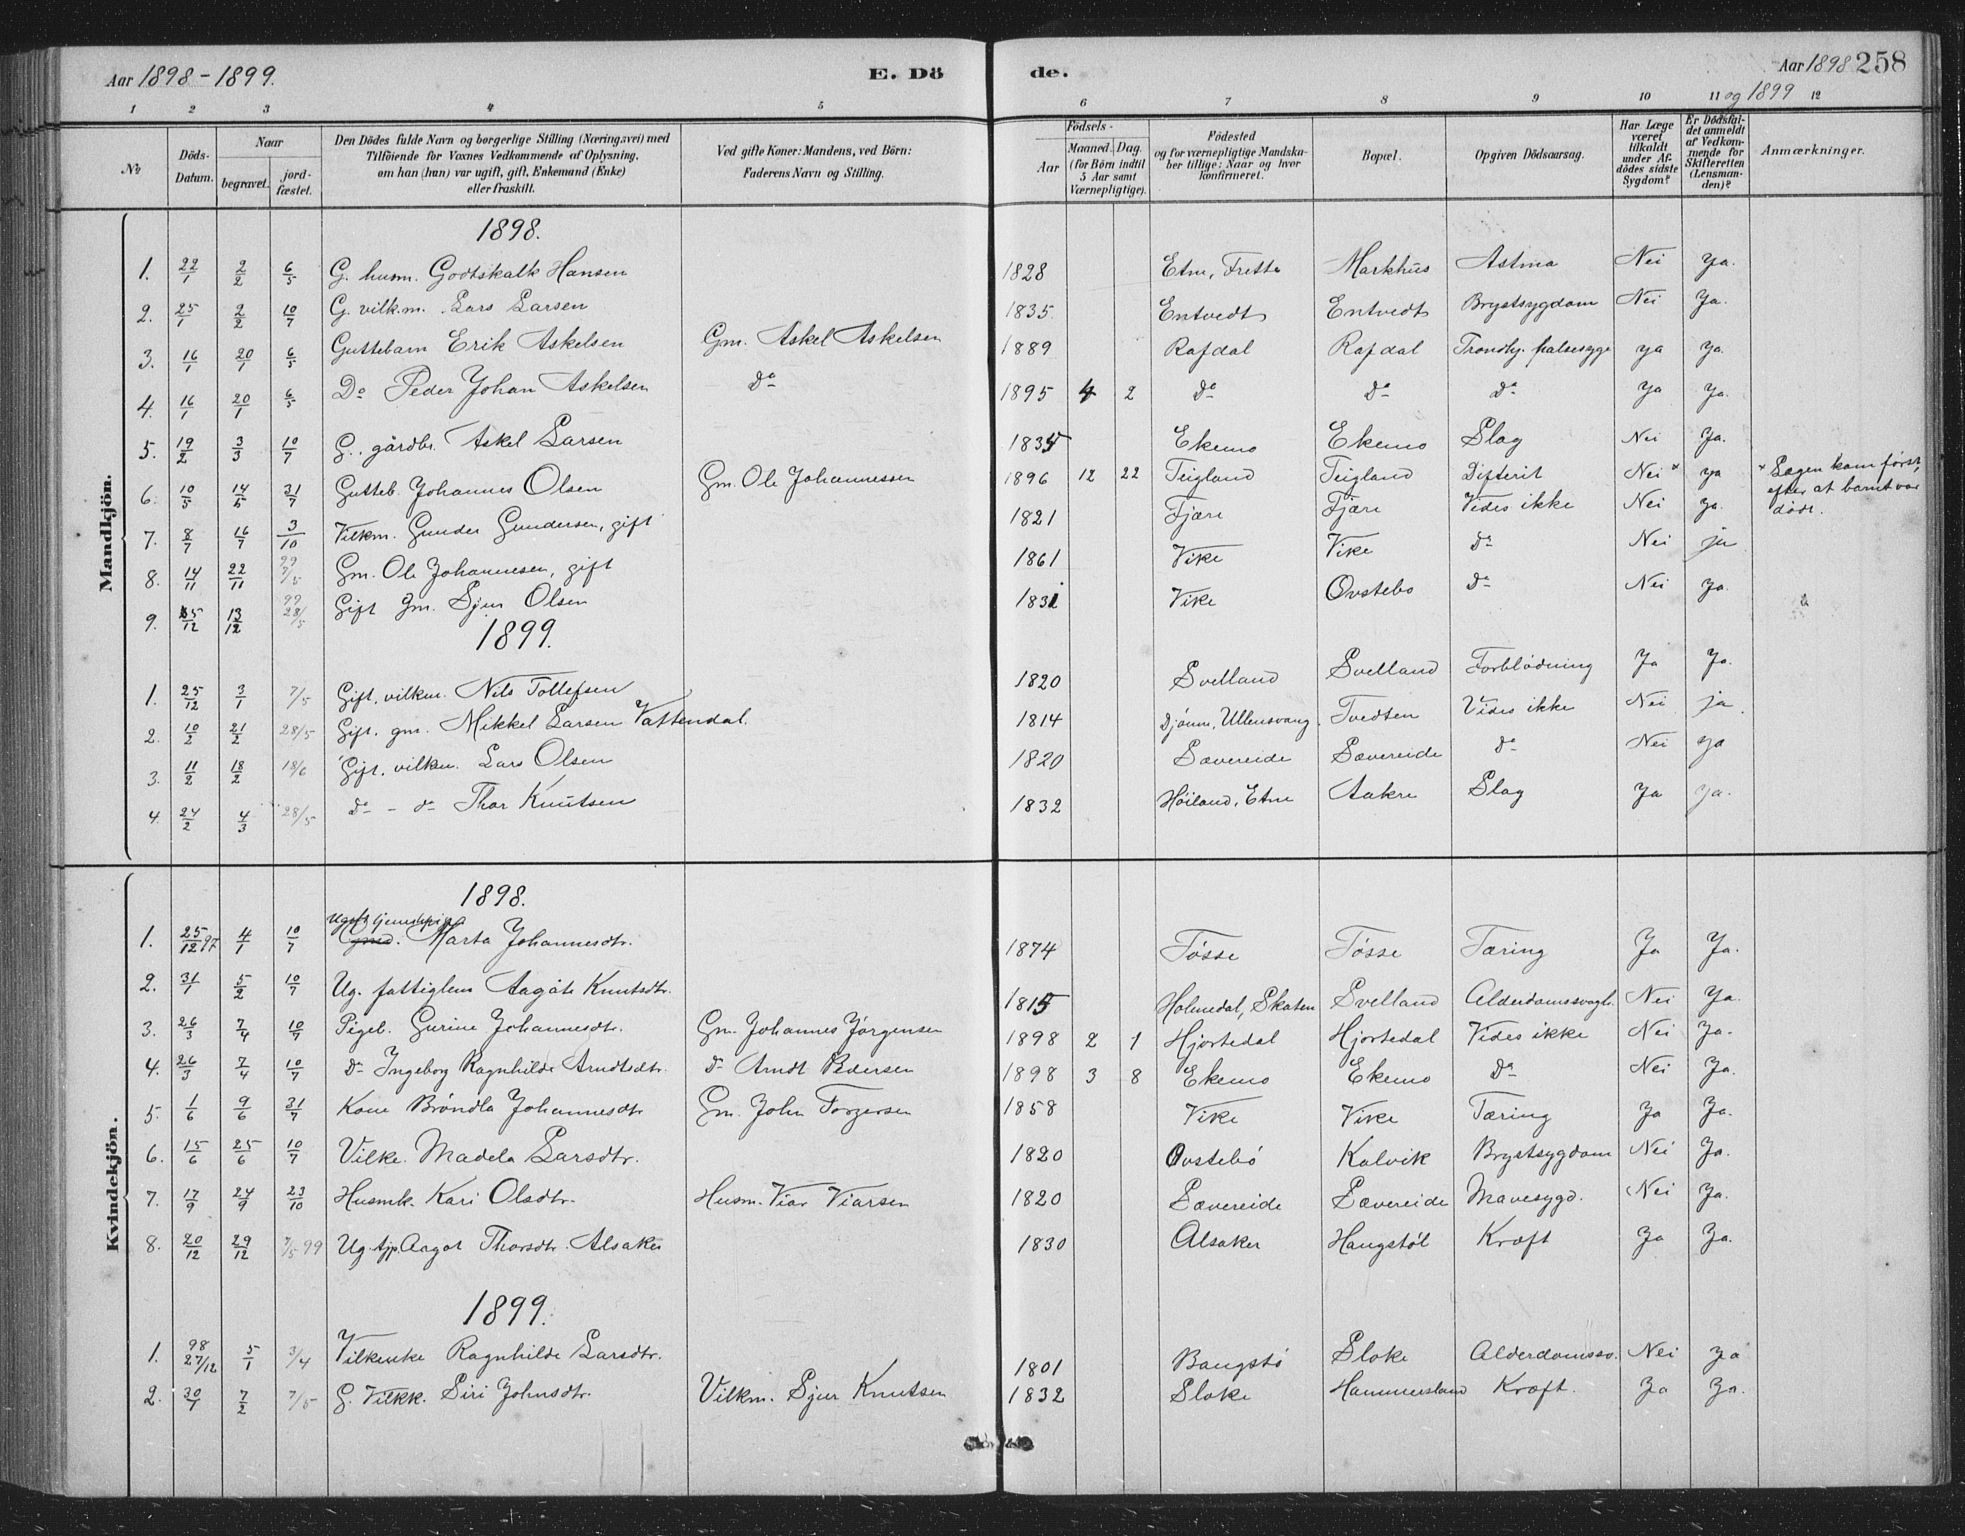 Aar 1898-1899. E. Dö de. Aar 1898 258
og 1899
1 2 3 4 5 6 7 8 9 10 11 12
No
Döds-Datum.
Naar
begravet.
jord-fæstet.
Den Dödes fulde Navn og borgerlige Stilling (Næringsvei) med
Tilföiende for Voxnes Vedkommende af Oplysning,
om han (hun) var ugift, gift, Enkemand (Enke)
eller fraskilt.
Ved gifte Koner: Mandens, ved Börn:
Faderens Navn og Stilling.
Födsels-
Aar
Maaned. Dag.
(for Börn indtil
5 Aar samt
Værnepligtige).
Födested
og for værnepligtige Mandska-
ber tillige: Naar og hvor
konfirmeret.
Bopæl.
Opgiven Dödsaarsag.
Har Læge
været
tilkaldt
under Af-
dödes sidste
Sygdom?
Er Dödsfal-
det anmeldt
af Vedkom-
mende for
Skifteretten
(Lensman-
den)?
Anmærkninger.
Mandkjön.
1898.
1. 22/1 2/2 6/5 G. husm. Godtskalk Hansen 1828 Etne, Frette Markhus Astma Nei Ja.
2. 25/1 2/2 10/7 G. vilkm. Lars Larsen 1835 Entvedt Entvedt Brystsygdom Nei Ja.
3. 16/1 20/1 6/5 Guttebarn Erik Askelsen Gm. Askel Askelsen 1889 Rafdal Rafdal Trondhj. halssyge ya Ja.
4. 16/1 20/1 6/5 Do Peder Johan Askelsen Do 1895 4 2 Do Do Do Ja Ja.
5. 19/2 3/3 10/7 G. gårdbr. Askel Larsen 1835 Ekemo Ekemo Slag Nei Ja.
6. 10/5 14/5 31/7 Gutteb. Johannes Olsen Gm. Ole Johannessen 1896 12 22 Teigland Teigland Difterit Nei* ya * Lægen kom först,
efter at barnet var
dödt.
7. 8/7 16/7 3/10 Vilkm. Gunder Gundersen, gift 1821 Fjære Fjære Vides ikke Nei Ja.
8. 14/11 22/11 99 7/5 Gm. Ole Johannesen, gift 1861 Vike Vike Do Nei ja
9. 5/12 13/12 99 28/5 Gift gm. Sjur Olsen 1831 Vike Ovstebo Do Nei Ja.
1899.
1. 25/12 3/1 7/5 Gift, vilkm. Nils Tollefsen 1820 Svelland Svelland Forblödning Ja Ja.
2. 10/2 21/2 28/5 Gift. gm. Mikkel Larsen Vattendal. 1814 Djönne, Ullensvang. Tvedten Vides ikke Nei ja
3. 11/2 18/2 18/6 Gift. vilkm. Lars Olsen 1820 Sævereide Sævereide Do Nei ya
4. 24/2 4/3 28/5 Do - do Thor Knutsen 1832 Höiland, Etne Aakre Slag Ja Ja.
Kvindekjön.
1898.
1. 25/12 97 4/1 10/7 Ugift tjenestepige Marta Johannesdtr. 1874 Tösse Tösse Tæring Ja Ja.
2. 31/1 5/2 10/7 Ug. fattiglem Aagåte Knutsdtr. 1815 Holmedal, Skaten Svelland Alderdomssvagh. Nei Ja.
3. 26/3 7/4 10/7 Pigeb. Gurine Johannesdtr. Gm. Johannes Jörgensen 1898 2 1 Hjortedal Hjortedal Vides ikke Nei Ja.
4. 26/3 7/4 10/7 Do Ingeborg Ragnhilde Arndtsdtr. Do Arndt Pedersen 1898 3 8 Ekemo Ekemo Do Nei Ja.
5. 1/6 9/6 31/7 Kone Bröndla Johannesdtr Gm. John Torgersen 1858 Vike Vike Tæring Ja Ja.
6. 15/6 25/6 10/7 Vilke. Madela Larsdtr. 1820 Ovstebö Kalvik Brystsygdom Nei Ja.
7. 17/9 24/9 23/10 Husmk. Kari Olsdtr. Husm. Viar Viarsen 1820 Sævereide Sævereide Mavesygd. Nei Ja.
8. 20/12 29/12 7/5 99 Ug. tjp. Aagot Thorsdtr. Alsaker 1830 Alsaker Haugstöl Kræft Ja Ja.
1899.
1. 98 27/12 5/1 3/4 Vilkenke Ragnhilde Larsdtr. 1801 Baugstö Sloke Alderdomssv. Nei Ja
2. 30/1 7/2 7/5 G. Vilkk. Siri Johnsdtr. Vilkm. Sjur Knutsen 1832 Sloke Hammersland Kræft. Ja Ja.